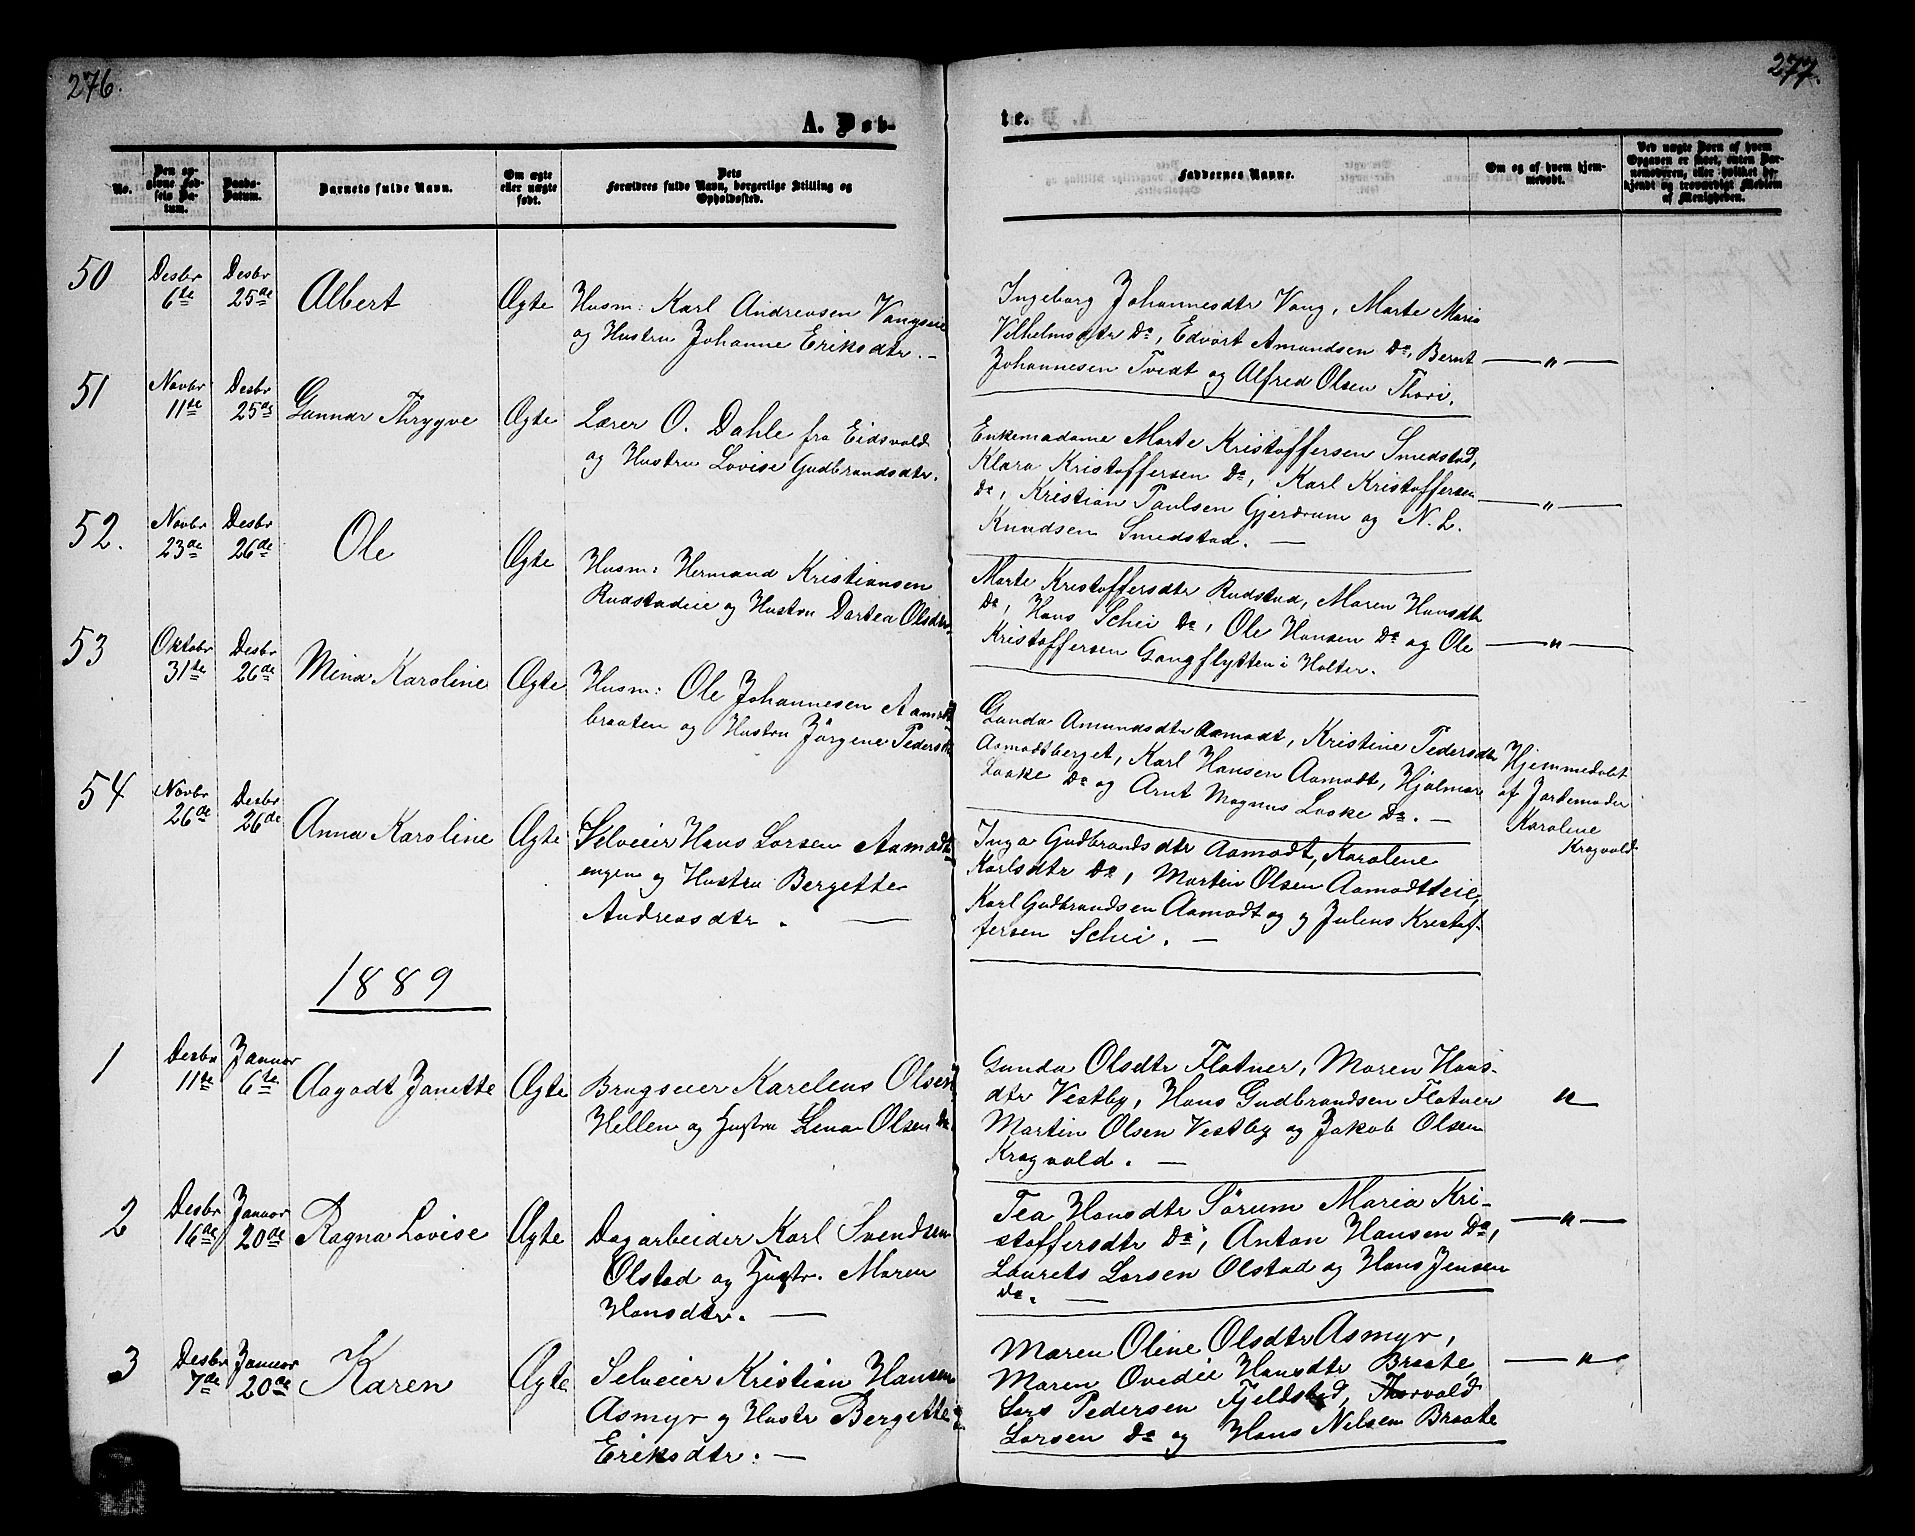 276.
277.
A. Døb-
te.
No.
Den opgivne Fødsels Datum.
Daabs-Datum.
Barnets fulde Navn.
Om ægte eller uægte født.
Dets Forældres fulde Navn, borgerlige Stilling og Opholdssted.
Faddernes Navne.
Om og af hvem hjemmedøbt.
Ved uægte Børn af hvem Opgaven er skeet, enten Barnemoderen, eller hvilket bekjendt og troværdigt Medlem af Menigheden.
50
Desbr 6te
Desbr 25de
Albert
Ægte
Husm: Karl Andreasen Vangseie
og Hustru Johanne Eriksdtr. —
Ingeborg Johannesdtr Vang, Marte Maria
Vilhelmsdtr Do, Edvart Amundsen Do, Bernt
Johannesen Tvedt og Alfred Olsen Thori.
— " —
51
Novbr 11te
Desbr 25de
Gunnar Thrygve
Ægte
Lærer O. Dahle fra Eidsvold
og Hustru Lovise Gudbrandsdtr.
Enkemadame Marte Kristoffersen Smedstad,
Klara Kristoffersen Do, Karl Kristoffersen
Do, Kristian Paulsen Gjerdrum og N. L.
Knudsen Smedstad. —
— " —
52.
Novbr 23de
Desbr 26de
Ole
Ægte
Husm: Hermand Kristiansen
Rudstadeie og Hustru Dortea Olsdtr.
Marte Kristoffersdtr Rudstad, Maren Hansdtr
Do, Hans Schei Do, Ole Hansen Do og Ole
Kristoffersen Gangflytten i Holter.
— " —
53
Oktobr 31te
Desbr 26de
Mina Karoline
Ægte
Husm: Ole Johannesen Aamodt
braaten og Hustru Jørgene Pedersdtr
Gunda Amundsdtr Aamodt, Kristine Pedersdtr
Aamodtberget, Karl Hansen Aamodt, Hjalmar
Laake Do og Arnt Magnus Laake Do. —
Hjemmedøbt
af Jordemoder
Karoline
Kragvold
54
Novbr 26de
Desbr 26de
Anna Karoline
Ægte
Selveier Hans Larsen Aamodt
engen og Hustru Bergette
Andreasdtr. —
Inga Gudbrandsdtr Aamodt, Karolene
Karlsdtr Do, Martin Olsen Aamodteie,
Karl Gudbrandsen Aamodt og og Julius Kristof-
fersen Schei. —
1889
1
Desbr 11te
Januar 6te
Aagodt Janette
Ægte
Brugseier Karelius Olsen
Hellen og Hustru Lena Olsen Do
Gunda Olsdtr Flatner, Maren Hans-
dtr Vestby, Hans Gudbrandsen Flatner
Martin Olsen Vestby og Jakob Olsen
Kragvold. —
"
2
Desbr 16de
Januar 20de
Ragna Lovise
Ægte
Dagarbeider Karl Svendsen
Olstad og Hustr. Maren
Hansdtr. —
Tea Hansdtr Sørum Maria Kri-
stoffersdtr Do, Anton Hansen Do,
Laurets Larsen Olstad og Hans Jensen
Do. —
— " —
3
Desbr 7de
Januar 20de
Karen
Ægte
Selveier Kristian Hansen
Asmyr og Hustr Bergette
Eriksdtr. —
Maren Oline Olsdtr Asmyr,
Maren Ovedie Hansdtr Braate
Lars Pedersen Fjeldstad, Thorvald
Larsen Do og Hans Nilsen Braate
— " —